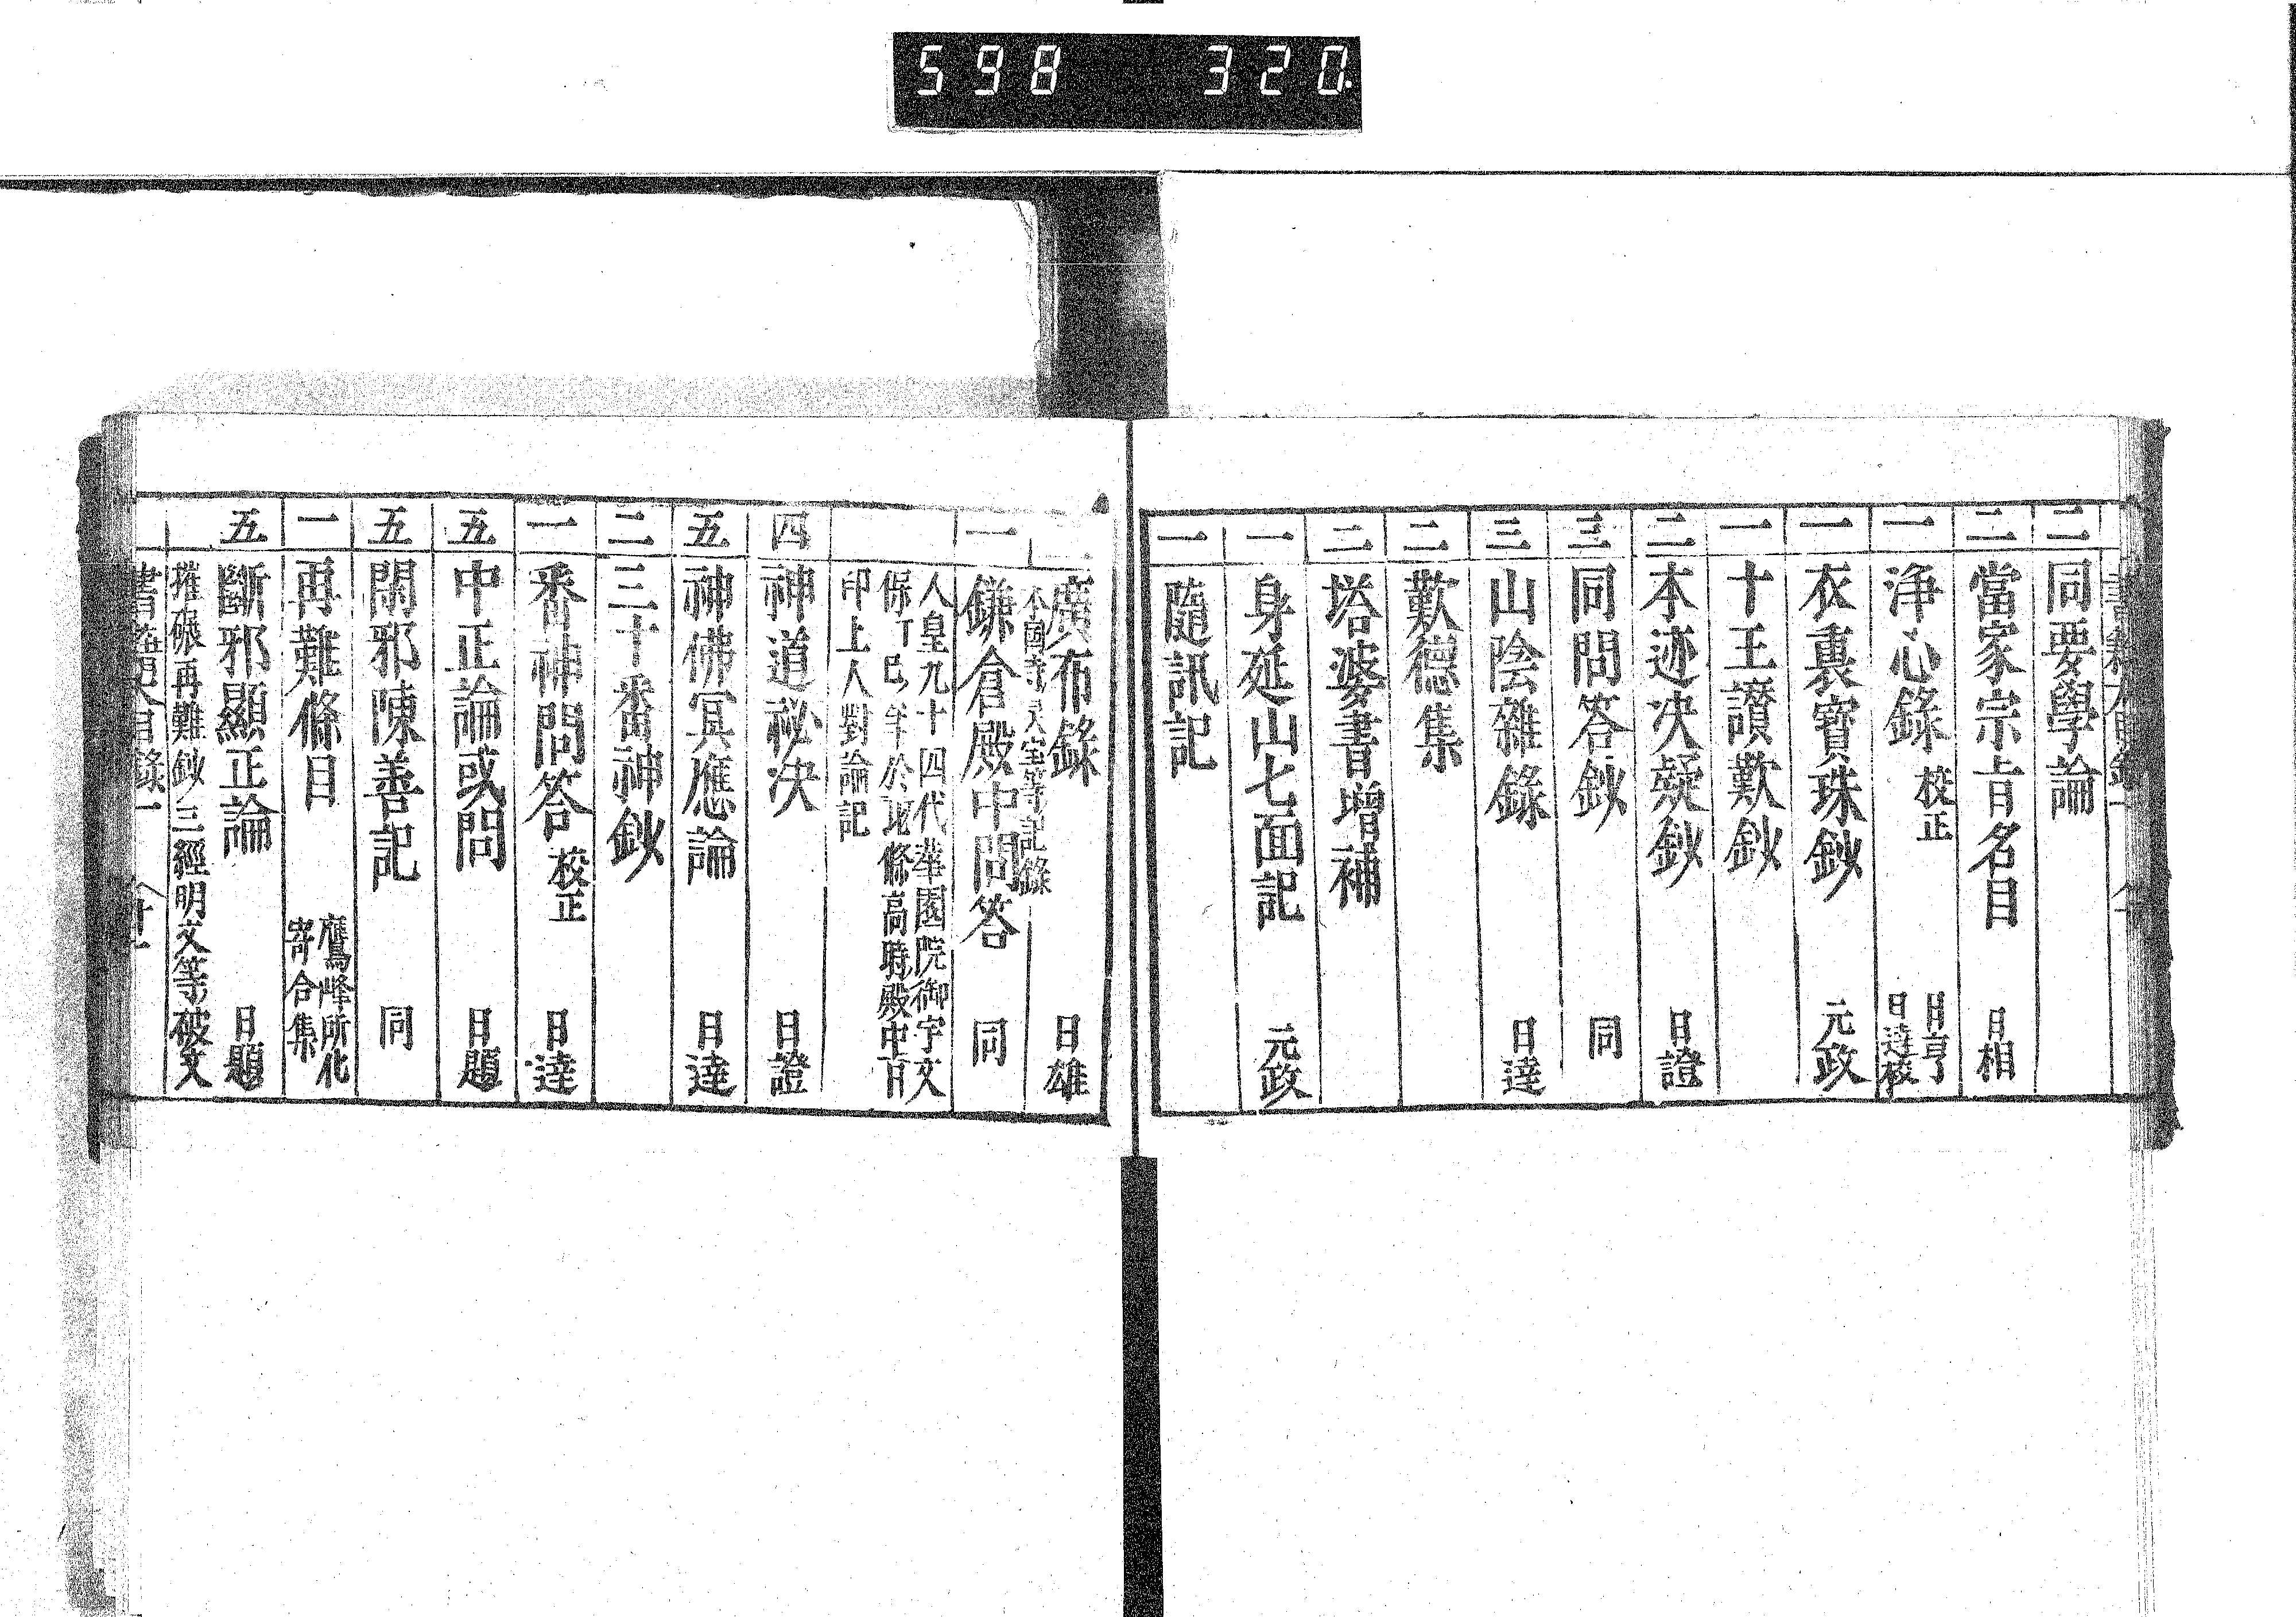 598 320.
二 同要學論
二 當家宗旨名目 日相
一 淨心錄 校正 日亨 日達校
一 衣裏寶珠鈔 元政
一 十王讃歎鈔
二 本迹決疑鈔 日證
三 同問答鈔 同
三 山陰雜錄 日達
二 歎德集
二 塔婆書增補
一 身延山七面記 元政
一 隨訊記
廣布錄 日雄
本國寺 等記錄
一 鎌倉殿中問答 同
人皇九十四代華園院御宇文
保丁巳年於北條高時殿中日
印上人對論記
四 神道祕決 日證
五 神佛冥應論 日達
二 三十番神鈔
一 番神問答 校正 日達
五 中正論或問 日題
五 閑邪陳善記 同
一 再難條目 鷹峰所化寄合集
五 斷邪顯正論 日題
摧碾再難鈔三經明文等破文
書籍目錄一